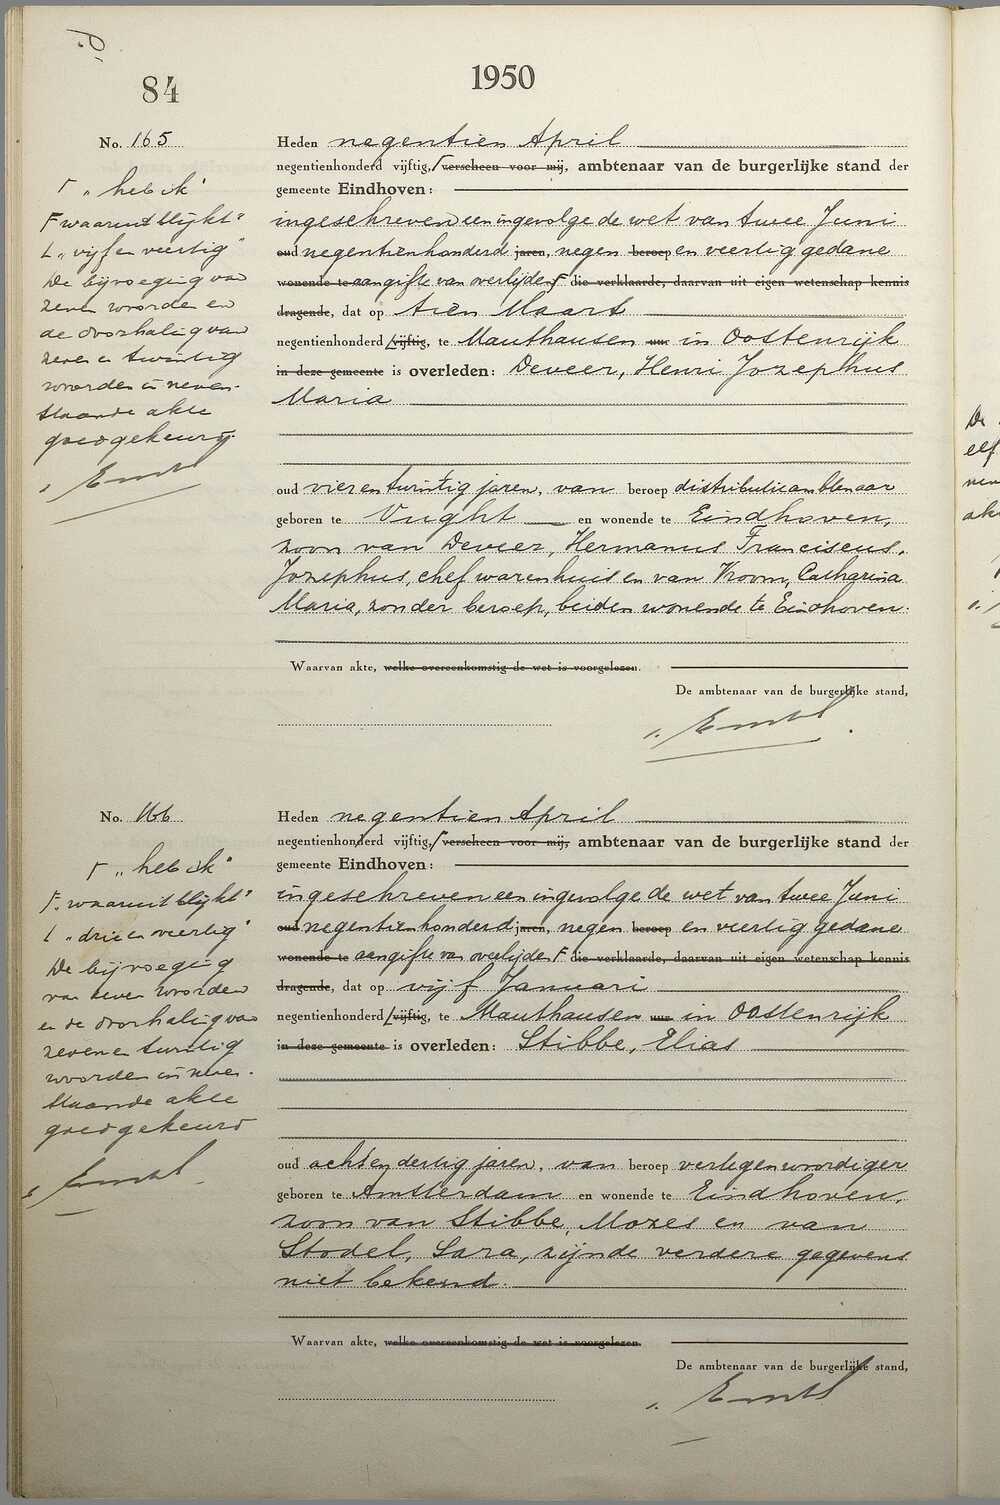 84
1950
No. 165
Heden negentien April
negentienhonderd vijftig, ⌈ verscheen voor mij, ambtenaar van de burgerlijke stand der
gemeente Eindhoven:
ingeschreven een ingevolge de wet van twee Juni
oud negentienhonderd jaren, negen beroep en veertig gedane
wonende te aangifte van overlijden F die verklaarde, daarvan uit eigen wetenschap kennis
dragende, dat op tien Maart
negentienhonderd L vijftig, te Mauthausen uur in Oostenrijk
in deze gemeente is overleden: Deveer, Henri Jozephus
Maria
oud vier en twintig jaren, van beroep distributieambtenaar
geboren te Vught en wonende te Eindhoven,
zoon van Deveer, Hermanus Franciscus,
Jozephus, chef warenhuis en van Kroon, Catharina
Maria, zonder beroep, beiden wonende te Eindhoven.
Waarvan akte, welke overeenkomstig de wet is voorgelezen.
De ambtenaar van de burgerlijke stand,
⌈ „heb ik"
F waaruit blijkt"
L „vijf en veertig"
De bijvoeging van
zeven woorden en
de doorhaling van
zeven en twintig
woorden in neven-
staande akte
goedgekeurd.
No. 166
Heden negentien April
negentienhonderd vijftig, ⌈ verscheen voor mij, ambtenaar van de burgerlijke stand der
gemeente Eindhoven:
ingeschreven een ingevolge de wet van twee Juni
oud negentienhonderd jaren, negen beroep en veertig gedane
wonende te aangifte van overlijden F die verklaarde, daarvan uit eigen wetenschap kennis
dragende, dat op vijf Januari
negentienhonderd L vijftig, te Mauthausen uur in Oostenrijk
in deze gemeente is overleden: Stibbe, Elias
oud acht en dertig jaren, van beroep vertegenwoordiger
geboren te Amsterdam en wonende te Eindhoven,
zoon van Stibbe, Mozes en van
Stodel, Sara, zijnde verdere gegevens
niet bekend.
Waarvan akte, welke overeenkomstig de wet is voorgelezen.
De ambtenaar van de burgerlijke stand,
⌈ „heb ik"
F. waaruit blijkt"
L „drie en veertig"
De bijvoeging
van zeven woorden
en de doorhaling van
zeven en twintig
woorden in neven-
staande akte
goedgekeurd
De
elf